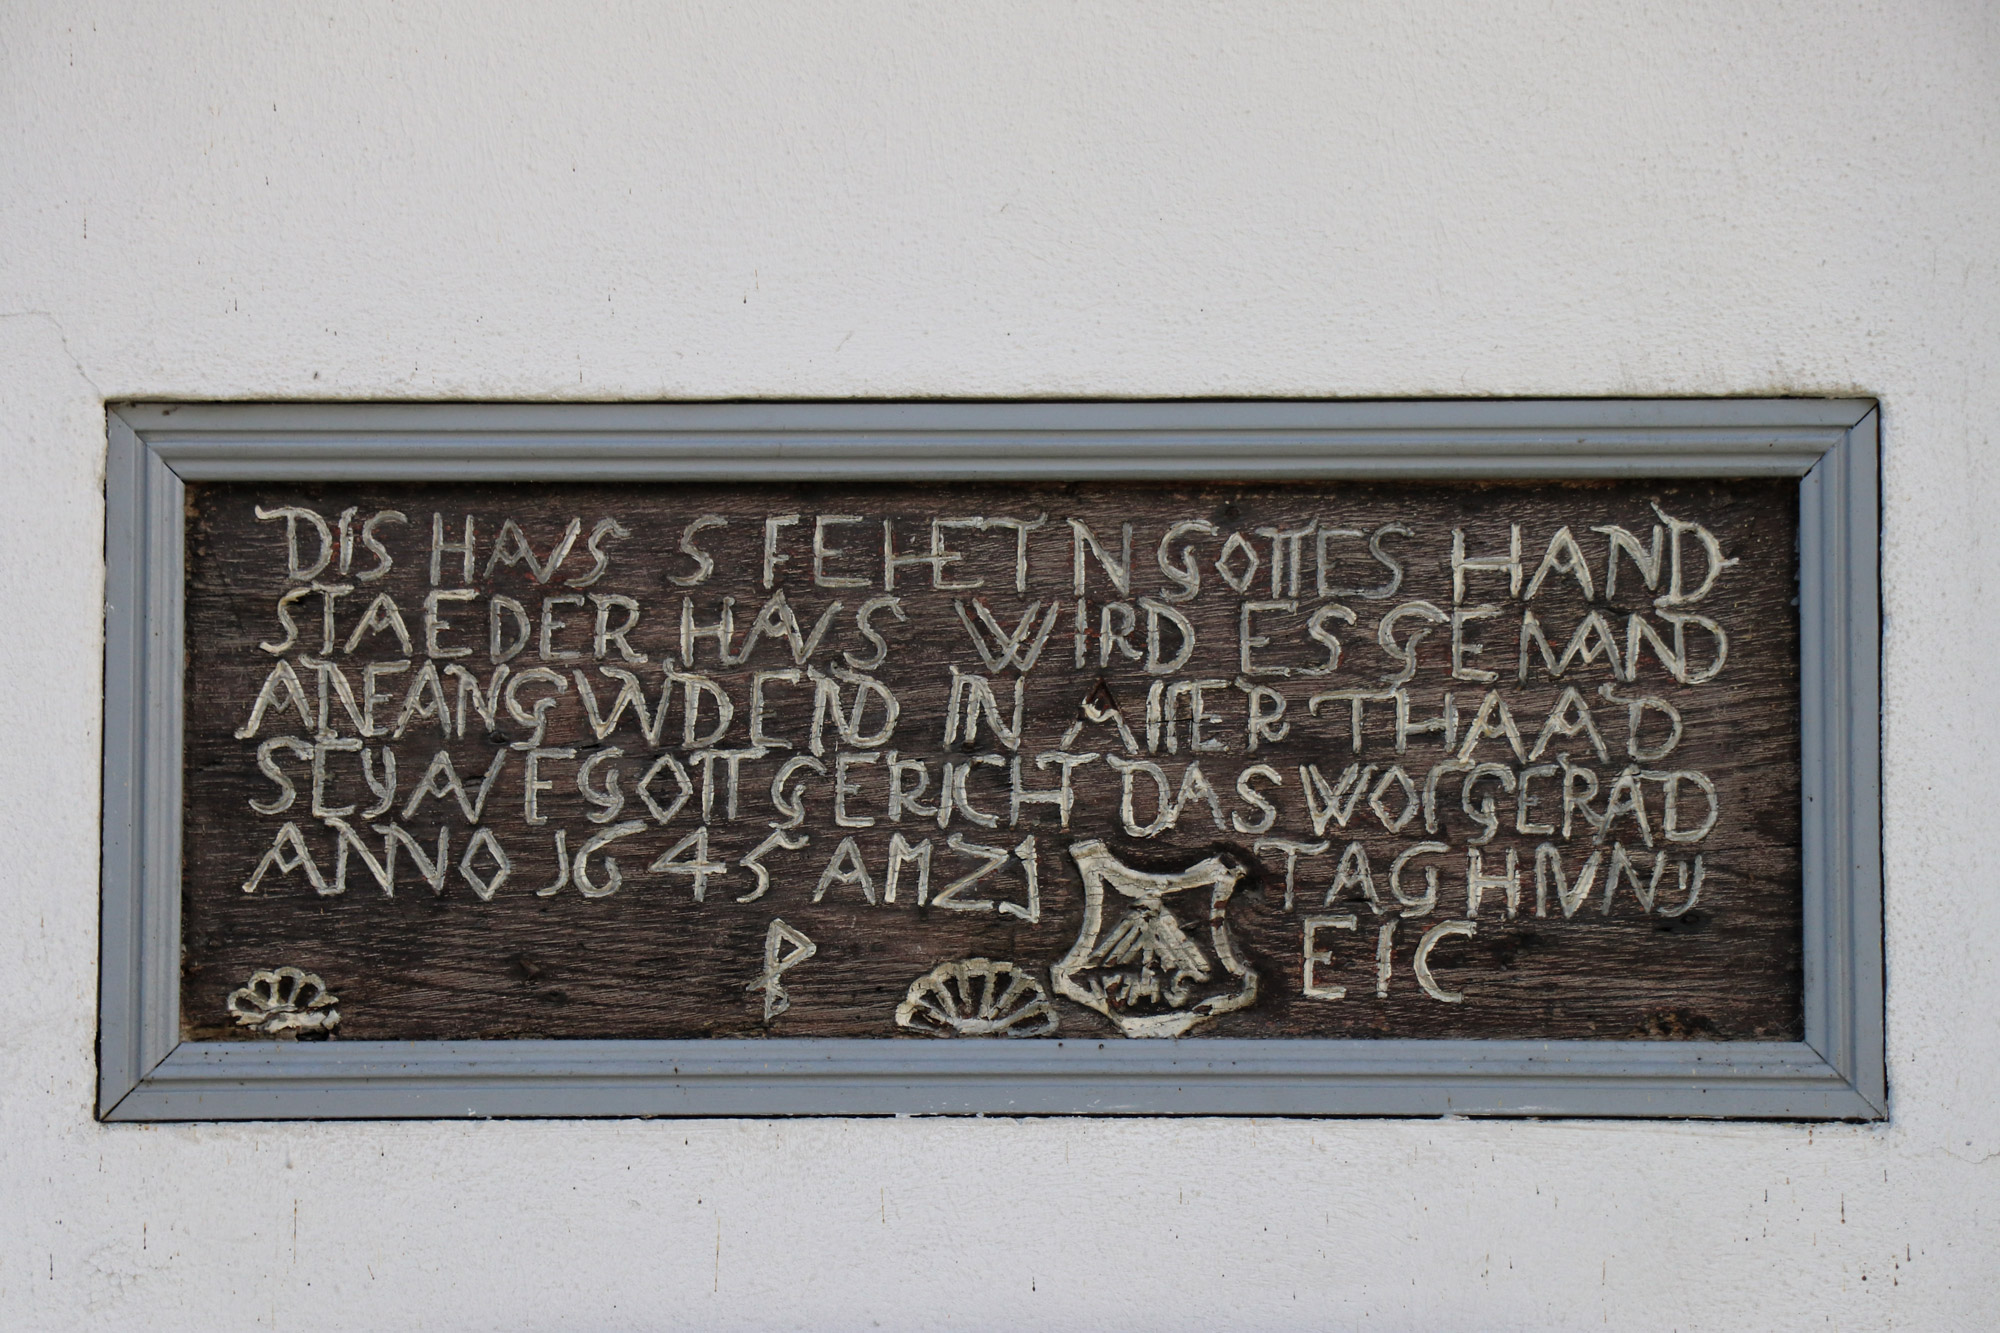 DIS HAVS S FEHET N GOTTES HAND
STAEDER HAVS WIRD ES GENAND
ANFANG VND END IN ALLER THAAD
SEY AVF GOTT GERICHT DAS WOL GERAD
ANNO J645 AM ZJ TAG HIVNIJ
EIC